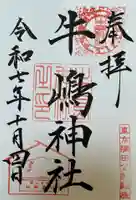 奉拝
牛嶋神社
令和七年十月四日